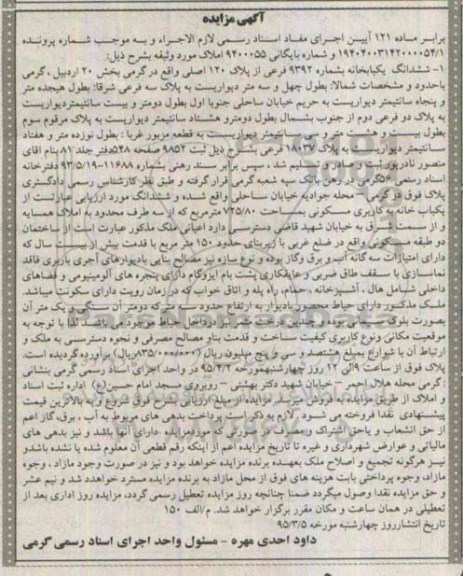 آگهی مزایده
برابر ماده ۱۲۱ آیین اجرای مفاد اسناد رسمی لازم الاجراء و به موجب شماره پرونده
۱۹۴۰۴۰۰۳۱۴۲۰۰۰۰۵۴/۱ و شماره بایگانی ۹۴۰۰۰۵۵ املاک مورد وثیقه بشرح ذیل:
۱- ششدانگ یکبابخانه بشماره ۹۳۹۲ فرعی از پلاک ۱۲۰ اصلی واقع در گرمی بخش ۲۰ اردبیل ، گرمی
باحدود و مشخصات شمالا: بطول چهل و سه متر دیواریست به پلاک سه فرعی شرقا: بطول هیجده متر
و پنجاه سانتیمتر دیواریست به حریم خیابان ساحلی جنوبا اول بطول دومتر و بیست سانتیمتردیواریست
به پلاک دو فرعی دوم از جنوب بشمال بطول دومترو هشتاد سانتیمتر دیواریست به پلاک مرقوم سوم
بطول بیست و هشت متر و سی سانتیمتر دیواریست به قطعه مزبور غربا : بطول نوزده متر و هفتاد
سانتیمتر دیواریست به پلاک ۱۸۰۳۷ فرعی بشرح ذیل ثبت ۹۸۵۲ صفحه ۵۴۸دفتر جلد ۸۱ بنام اقای
منصور نادرپور ثبت و صادر و تسلیم شد ، سپس برابر سند رهنی بشماره ۱۱۶۸۸-۹۳/۵/۱۹ دفترخانه
اسناد رسمی ۵گرمی در رهن بانک سپه شعبه گرمی قرار گرفته و طبق نظر کارشناس رسمی دادگستری
پلاک فوق در گرمی - محله جوادیه خیابان ساحلی واقع شده و ششدانگ مورد ارزیابی عبارتست از
یکباب خانه به کاربری مسکونی بمساحت ۷۲۵/۸۰ مترمربع که از سه طرف محدود به املاک همسایه
و از سمت شرق به خیابان شهید قاضی دسترسی دارد اعیانی ملک مذکور عبارت است از ساختمان
دو طبقه مسکونی واقع در ضلع غربی با زیربنای حدود ۱۵۰ متر مربع با قدمت بیش از بیست سال که
دارای امتیازات سه گانه آب و برق وگاز بوده و نوع سازه نیز مصالح بنایی بادیوارهای آجری باربری فاقد
نماسازی با سقف طاق ضربی و عایقکاری پشت بام ایزوگام دارای پنجره های آلومینیومی و فضاهای
داخلی شامل هال ، آشپزخانه ، حمام، راه پله و اتاق خواب که در زمان رویت دارای سکونت میباشد.
ملک مذکور دارای حیاط محصور بادیوار به ارتفاع حدود سه متر که دومتر آن سنگی و یک متر آن
بصورت بلوک سیمانی بوده و چندین درخت نیز درداخل حیاط موجود می باشد. لذا با توجه به
موقعیت مکانی ونوع کاربری کیفیت ساخت و قدمت بناو مصالح مصرفی و نحوه دسترسی به ملک و
ارتباط آن با شوارع بمبلغ هشتصد و سی و پنج میلیون ریال (۸۳۵/۰۰۰/۰۰۰ریال) برآورد گردیده است.
پلاک فوق از ساعت ۹الی ۱۲ روز چهارشنبهمورخه ۹۵/۴/۲ در واحد اجرای اسناد رسمی گرمی بنشانی
: گرمی محله هلال احمر – خیابان شهید دکتر بهشتی – روبروی مسجد امام حسین(ع) اداره ثبت اسناد
و املاک از طریق مزایده بفروش میرسد. مزایده از مبلغ ارزیابی بشرح فوق شروع و به بالاترین قیمت
پیشنهادی نقدا فروخته می شود . لازم به ذکر است پرداخت بدهی های مربوط به آب ، برق، گاز اعم
از حق انشعاب و یاحق اشتراک و مصرف در صورتی که موردمزایده دارای آن باشد و نیز بدهی های
مالیاتی و عوارض شهرداری و غیره تا تاریخ مزایده اعم از اینکه رقم قطعی آن معلوم شده یا نشده باشدو
نیز هرگونه تجمیع و اصلاح ملک بعهده برنده مزایده خواهد بود و نیز در صورت وجود مازاد ، وجوه
مازاد، وجوه پرداختی بابت هزینه های فوق از محل مازاد به برنده مزایده مسترد خواهدد شد و نیم عشر
و حق مزایده نقدا وصول میگردد ضمنا چنانچه روز مزایده تعطیل رسمی گردد، مزایده روز اداری بعد از
تعطیلی در همان ساعت و مکان مقرر برگزار خواهد شد. م/الف ۱۵۰
تاریخ انتشارروز چهارشنبه مورخه ۹۵/۳/۵
داود احدی مهره – مسئول واحد اجرای اسناد رسمی گرمی